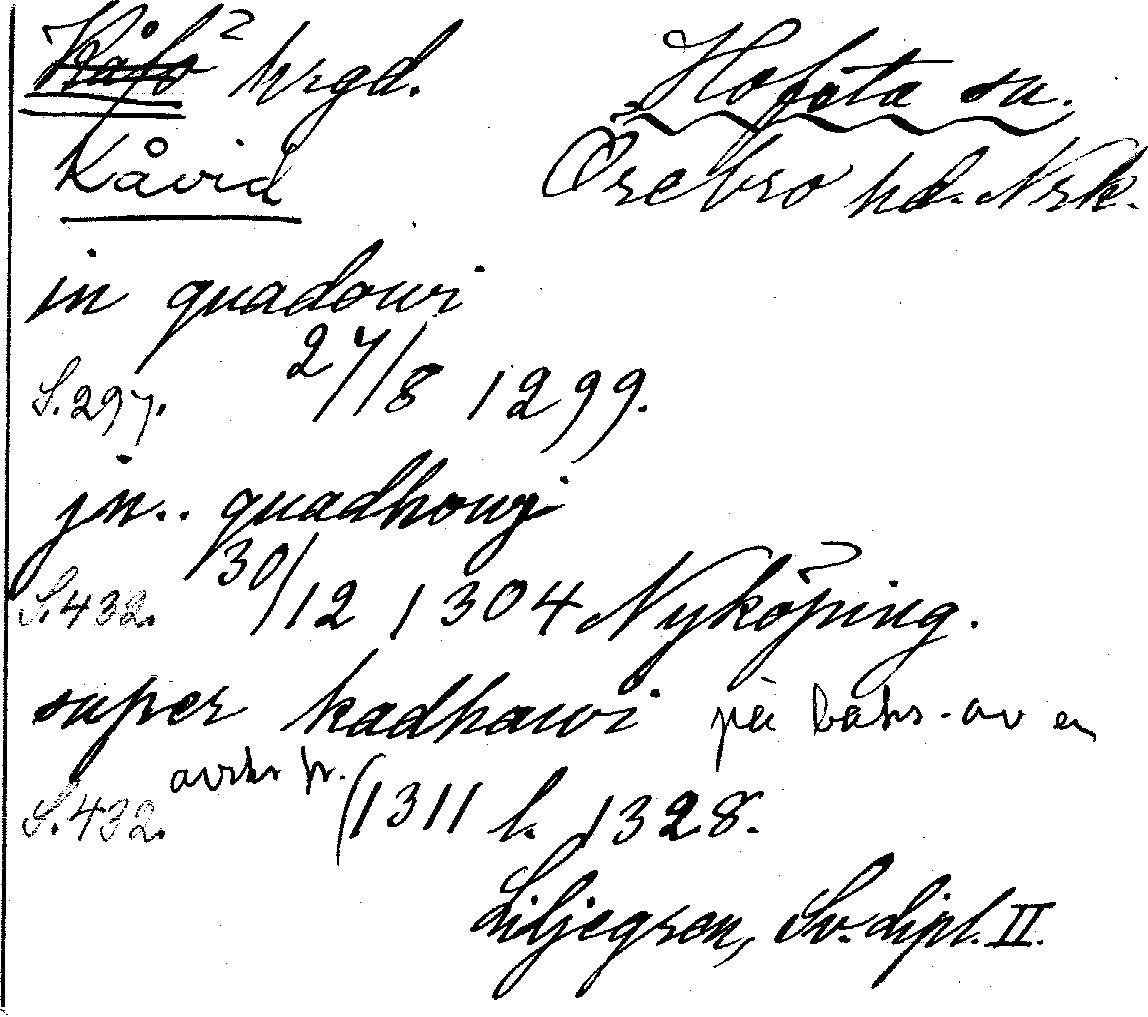 Kåfö hrgd. Hofsta sn.
Kåvid Örebro hd. Nrk.
in quadowi
S. 297. 27/8 1299.
jn.. quadhowj
S. 432. 30/12 1304 Nyköping.
super kadhawi på baks. av en
avskr fr.
S. 432. (1311 l. 1328.
Liljegren, Sv. dipl. II.